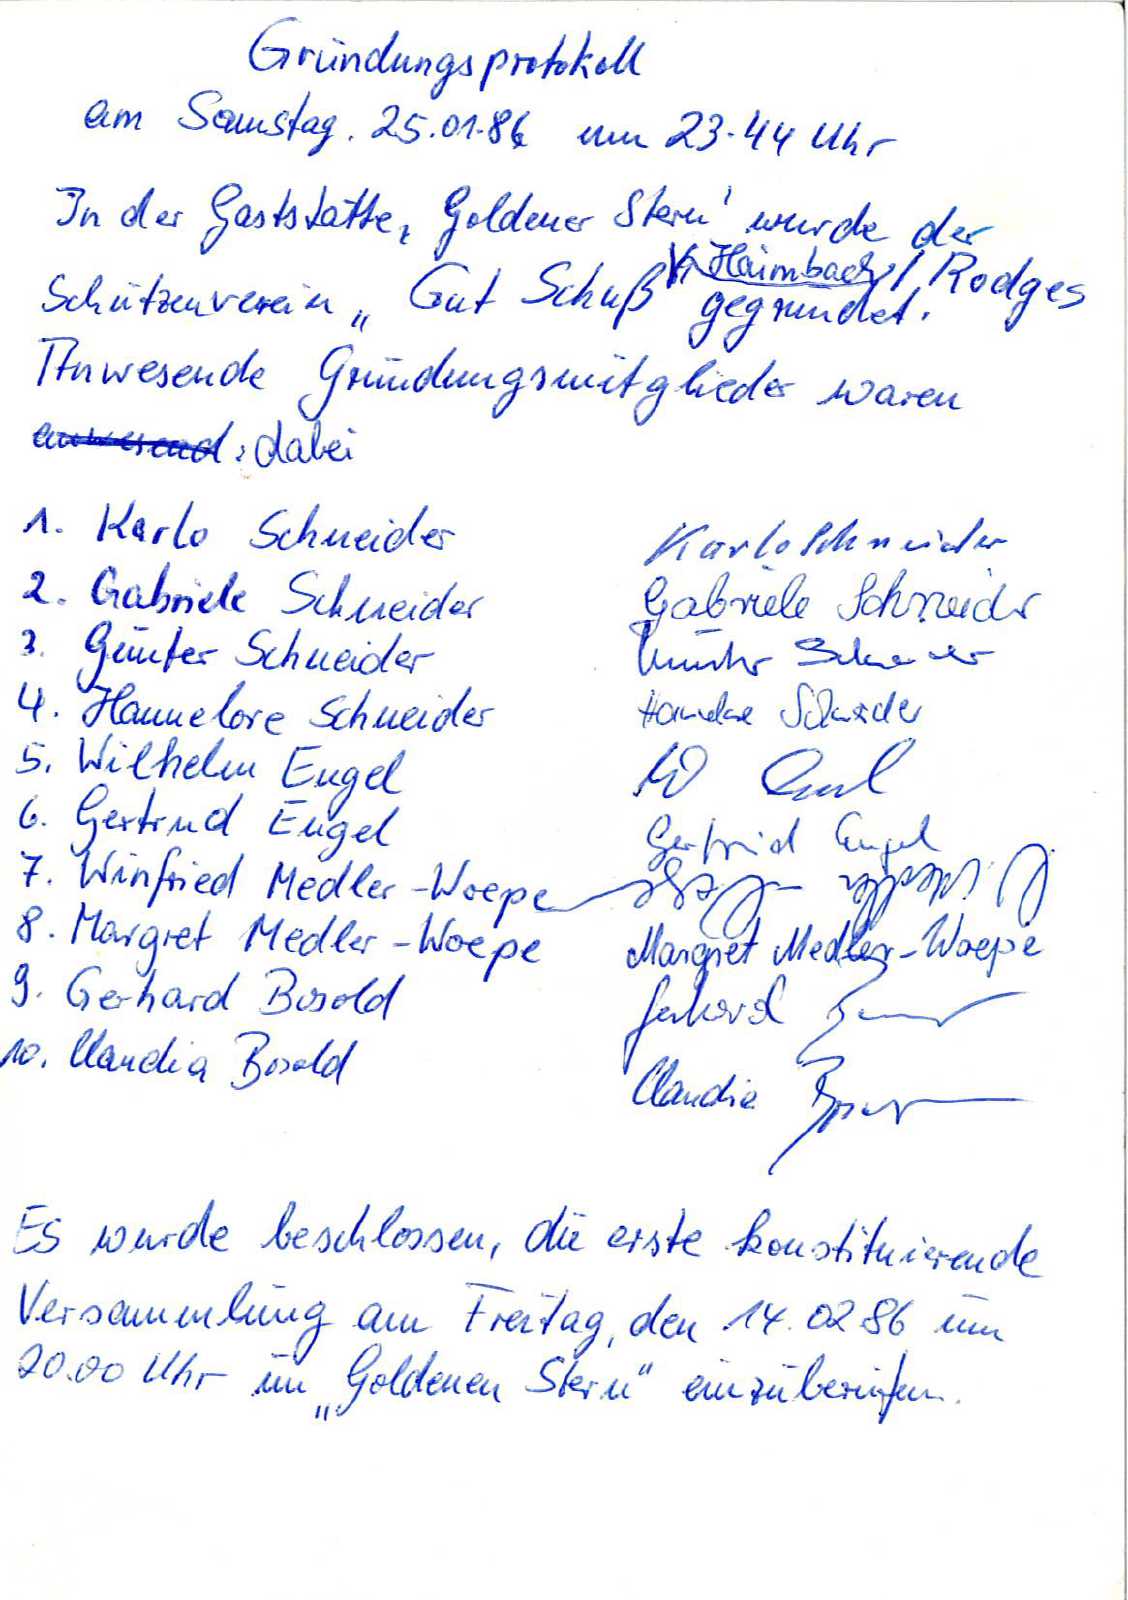 Gründungsprotokoll
am Samstag. 25.01.86 um 23.44 Uhr
In der Gaststätte „Goldener Stern" wurde der
Schützenverein „Gut Schuß Haimbach / Rodges
gegründet.
Anwesende Gründungsmitglieder waren
anwesend: dabei
1. Karlo Schneider Karlo Schneider
2. Gabriele Schneider Gabriele Schneider
3. Günter Schneider Günter Schneider
4. Hannelore Schneider Hannelore Schneider
5. Wilhelm Engel W Engel
6. Gertrud Engel Gertrud Engel
7. Winfried Medler-Woepe
8. Margret Medler-Woepe Margret Medler-Woepe
9. Gerhard Bosold Gerhard
10. Claudia Bosold Claudia
Es wurde beschlossen, die erste konstituierende
Versammlung am Freitag, den 14.02.86 um
20.00 Uhr im „Goldenen Stern" einzuberufen.